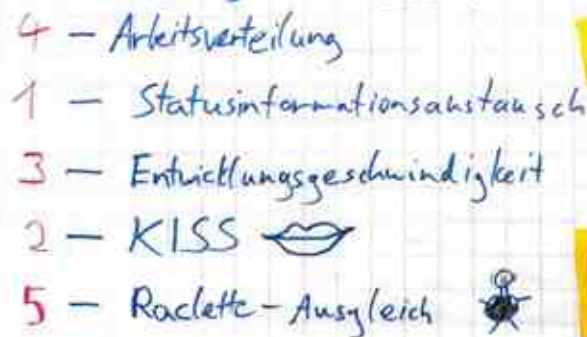 4 – Arbeitsverteilung
1 – Statusinformationsaustausch
3 – Entwicklungsgeschwindigkeit
2 – KISS
5 – Raclette-Ausgleich